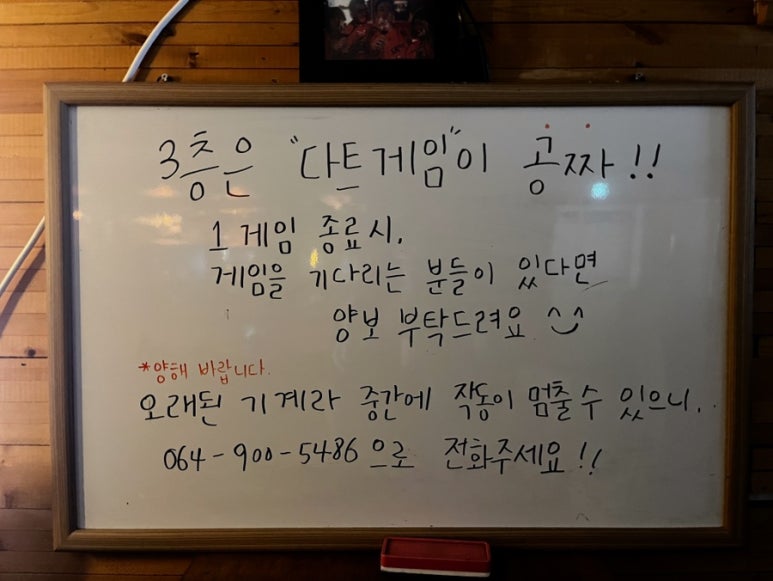 3층은 "다트게임"이 공짜!!
1게임 종료시,
게임을 기다리는 분들이 있다면
양보 부탁드려요 ^^
*양해 바랍니다.
오래된 기계라 중간에 작동이 멈출 수 있으니..
064-900-5486으로 전화주세요!!